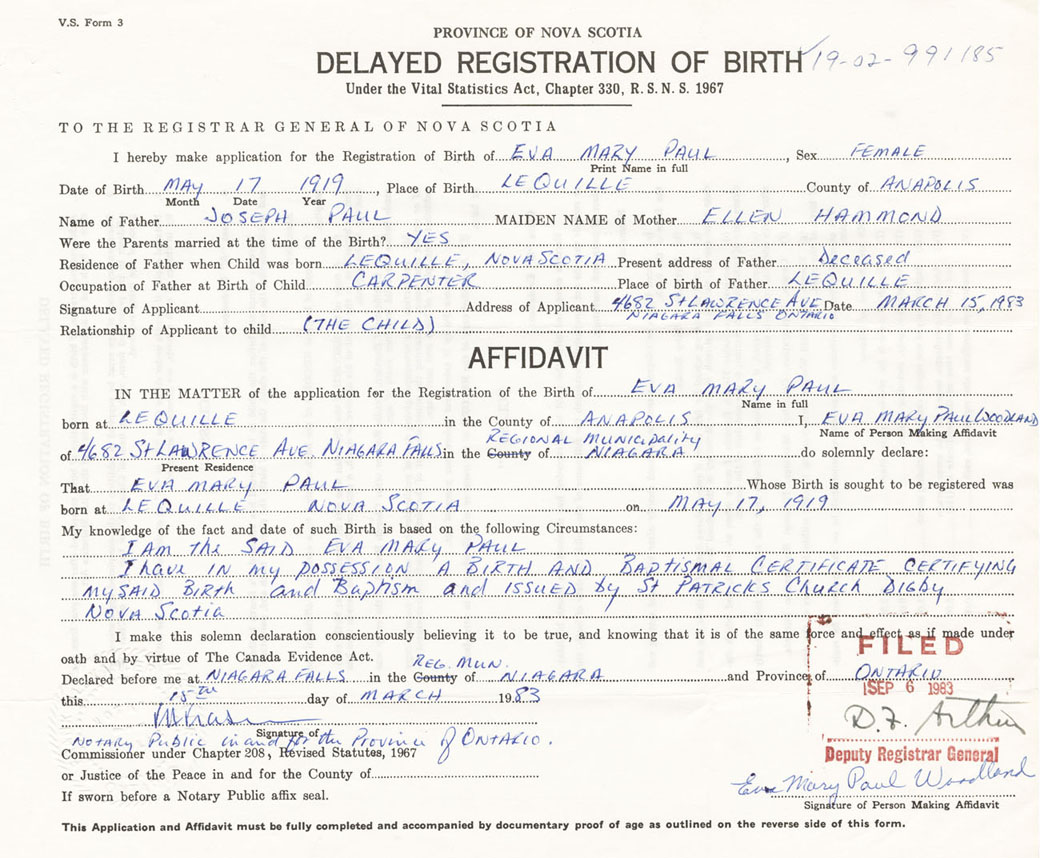 V.S. Form 3
PROVINCE OF NOVA SCOTIA
DELAYED REGISTRATION OF BIRTH 19-02-991185
Under the Vital Statistics Act, Chapter 330, R.S.N.S. 1967
TO THE REGISTRAR GENERAL OF NOVA SCOTIA
I hereby make application for the Registration of Birth of EVA MARY PAUL, Sex FEMALE
Print Name in full
Date of Birth MAY 17 1919, Place of Birth LEQUILLE County of ANAPOLIS
Month Date Year
Name of Father JOSEPH PAUL MAIDEN NAME of Mother ELLEN HAMMOND
Were the Parents married at the time of the Birth? YES
Residence of Father when Child was born LEQUILLE, NOVA SCOTIA Present address of Father Deceased
Occupation of Father at Birth of Child CARPENTER Place of birth of Father LEQUILLE
Signature of Applicant Address of Applicant 4682 St LAWRENCE AVE Date MARCH 15, 1983
NIAGARA FALLS ONTARIO
Relationship of Applicant to child (THE CHILD)
AFFIDAVIT
IN THE MATTER of the application for the Registration of the Birth of EVA MARY PAUL
Name in full
born at LEQUILLE in the County of ANAPOLIS I, EVA MARY PAUL WOODLAND
Name of Person Making Affidavit
REGIONAL MUNICIPALITY
of 4682 St LAWRENCE AVE. NIAGARA FALLS in the County of NIAGARA do solemnly declare:
Present Residence
That EVA MARY PAUL Whose Birth is sought to be registered was
born at LEQUILLE NOVA SCOTIA on MAY 17, 1919
My knowledge of the fact and date of such Birth is based on the following Circumstances:
I AM the SAID EVA MARY PAUL
I have in my POSSESSION A BIRTH AND BAPTISMAL CERTIFICATE CERTIFYING
MY SAID BIRTH and Baptism and ISSUED by St PATRICKS Church DIGBY
NOVA SCOTIA
I make this solemn declaration conscientiously believing it to be true, and knowing that it is of the same force and effect as if made under
oath and by virtue of The Canada Evidence Act.
FILED
REG. MUN.
Declared before me at NIAGARA FALLS in the County of NIAGARA and Province of ONTARIO
this 15TH day of MARCH 1983
SEP 6 1983
D.F. Arthur
Signature of
NOTARY Public in and for the Province of ONTARIO.
Commissioner under Chapter 208, Revised Statutes, 1967
Deputy Registrar General
or Justice of the Peace in and for the County of
Eva Mary Paul Woodland
Signature of Person Making Affidavit
If sworn before a Notary Public affix seal.
This Application and Affidavit must be fully completed and accompanied by documentary proof of age as outlined on the reverse side of this form.